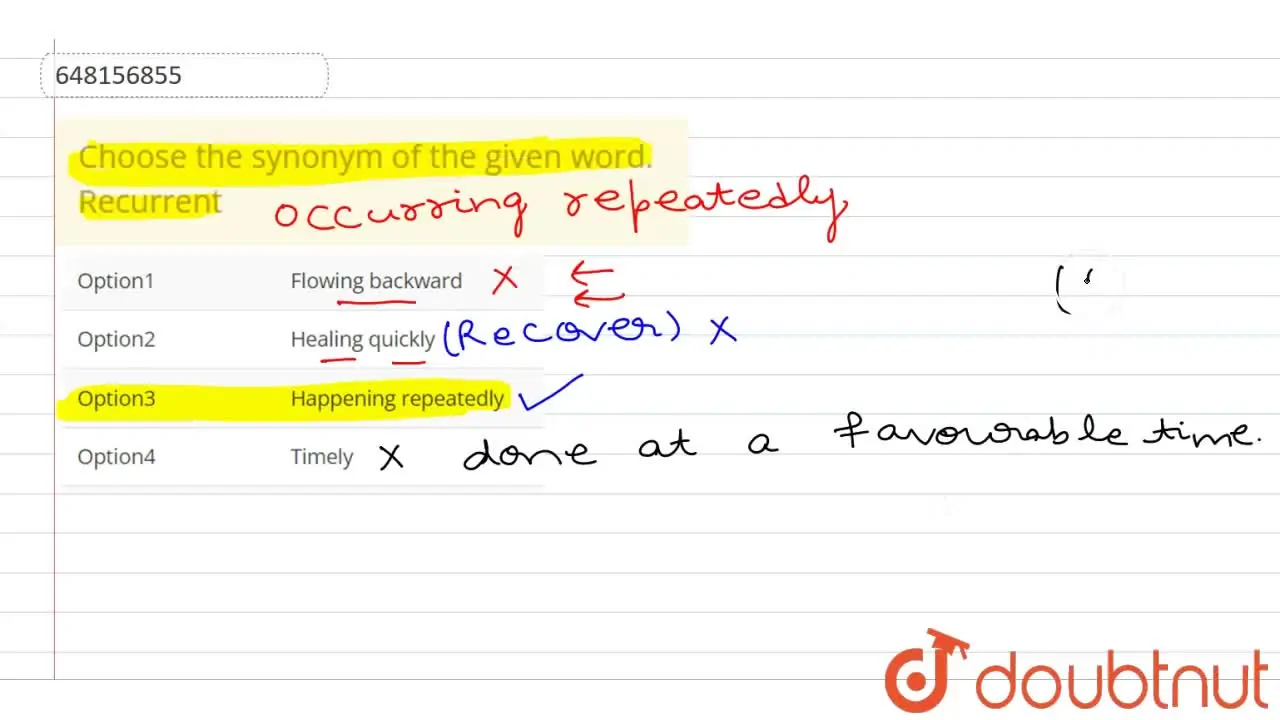 648156855
Choose the synonym of the given word.
Recurrent occurring repeatedly
Option1 Flowing backward X
Option2 Healing quickly (Recover) X
Option3 Happening repeatedly
Option4 Timely X done at a favourable time.
doubtnut